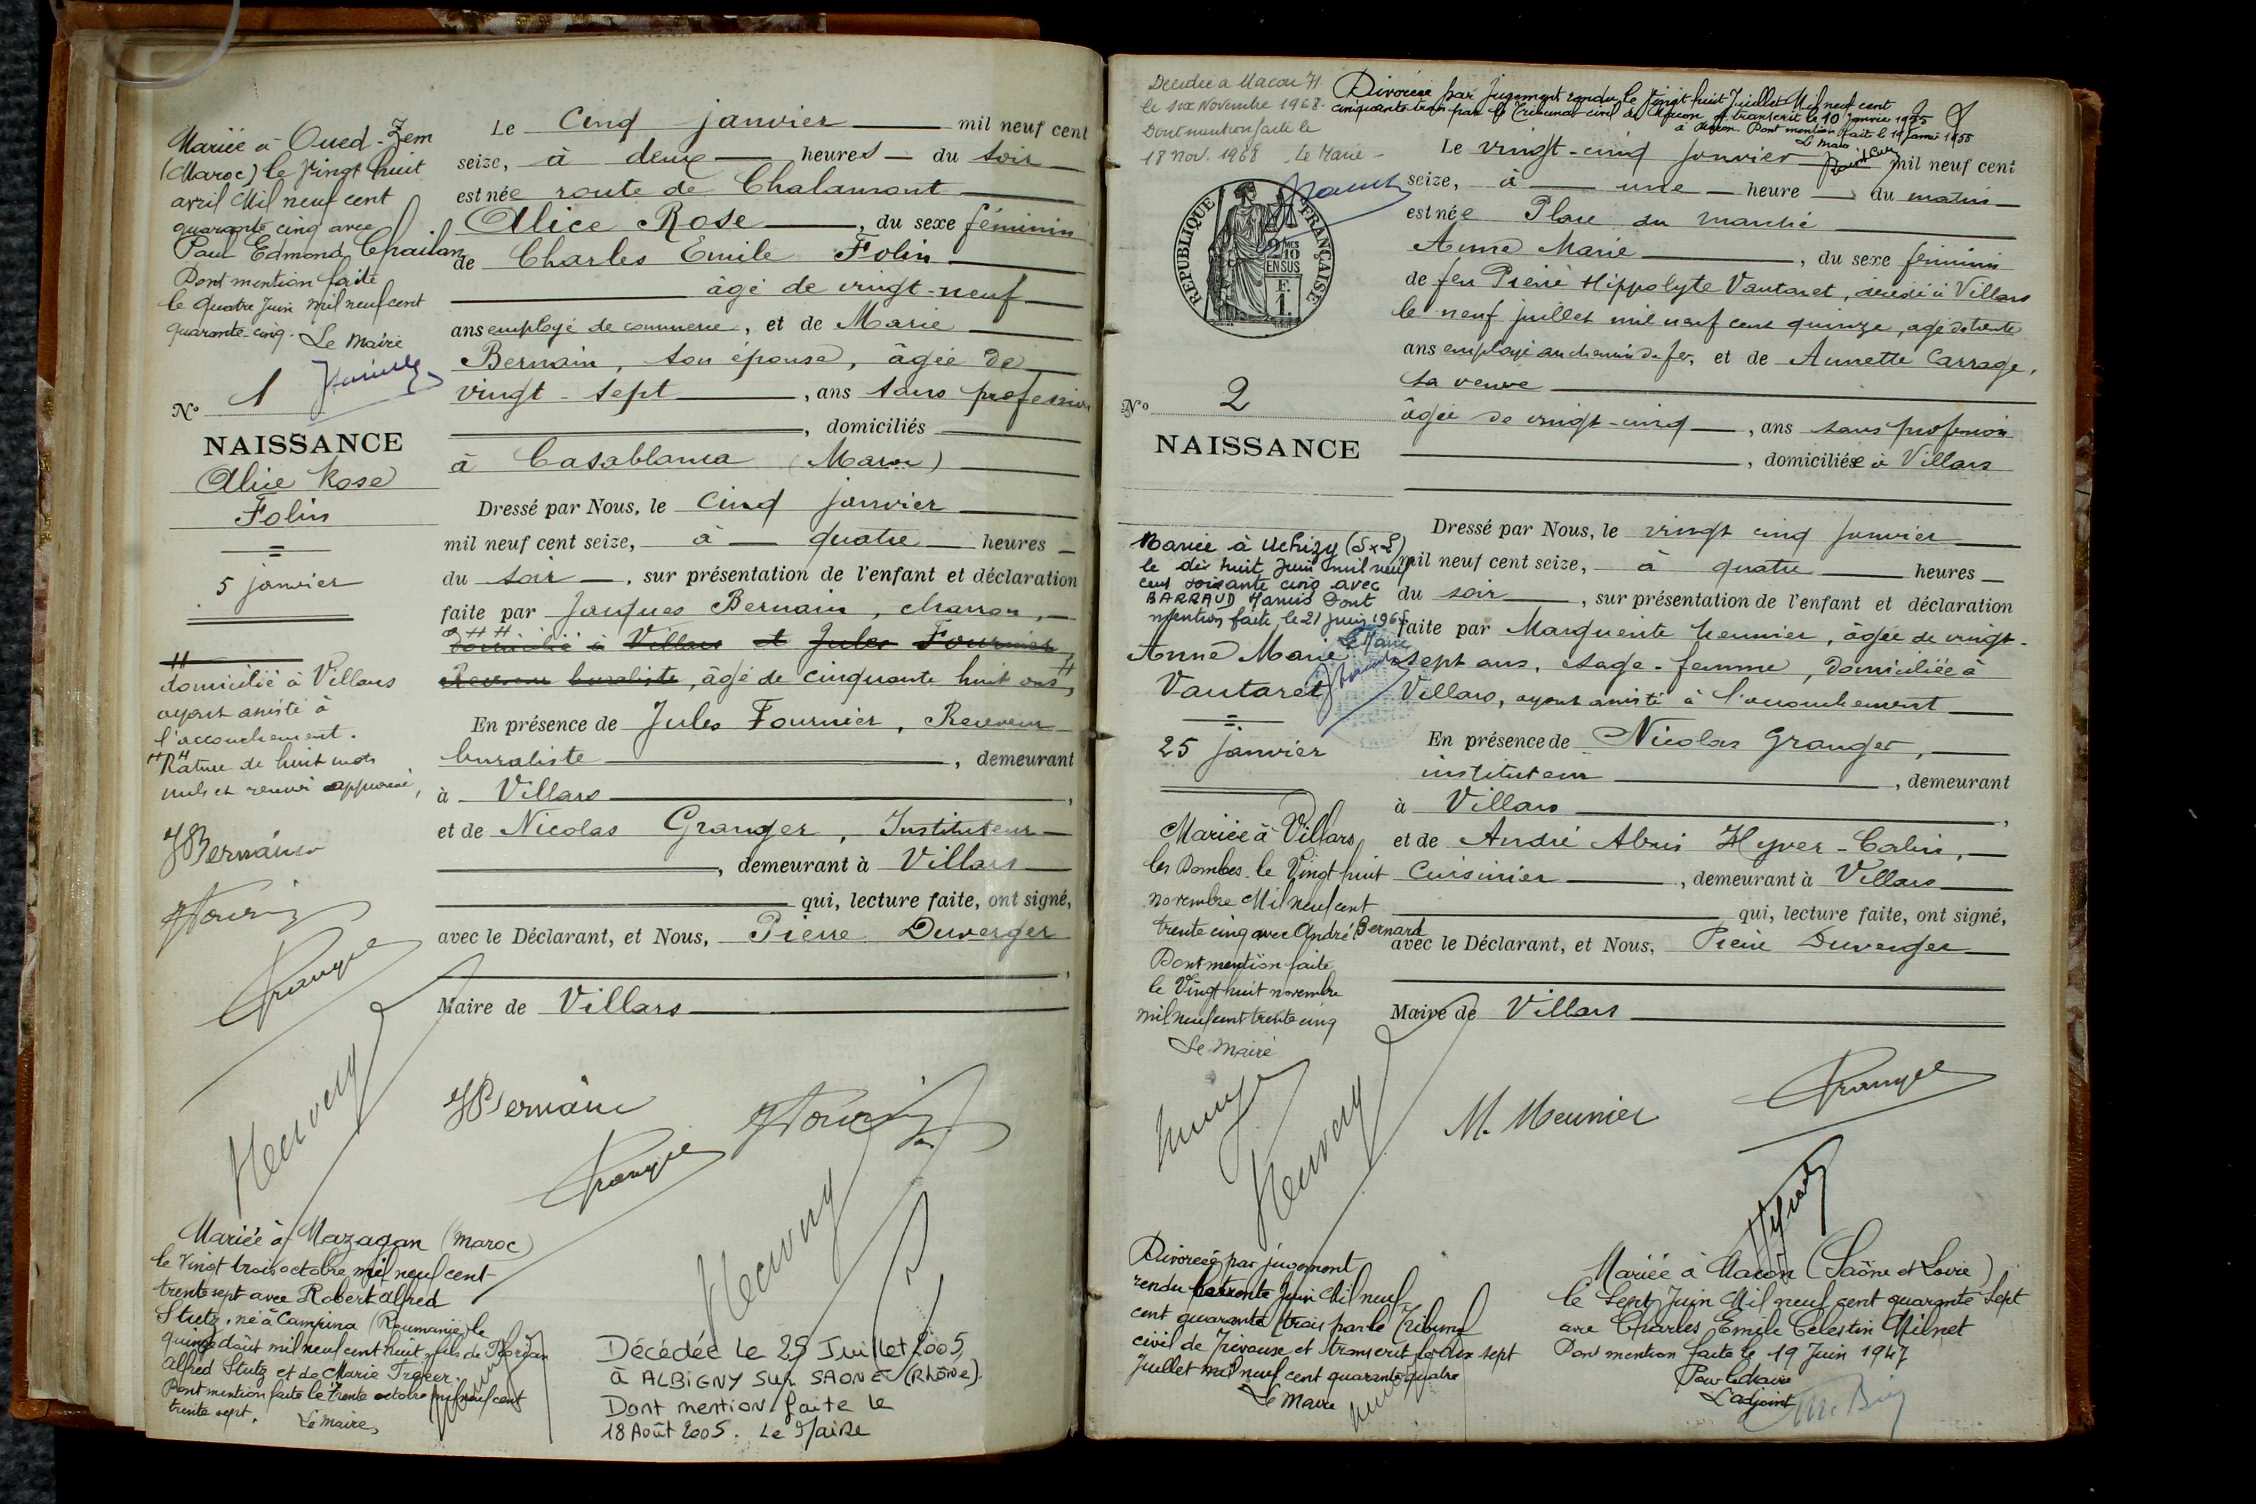 Mariée à Oued-Zem
(Maroc) le vingt huit
avril Mil neuf cent
quarante cinq avec
Paul Edmond Chailan
Dont mention faite
le quatre Juin mil neuf cent
quarante-cinq. Le Maire
N° 1
NAISSANCE
Alice Rose
Folin
5 janvier
domicilié à Villars
ayant assisté à
l'accouchement.
Rature de huit mots
nuls et renvoi approuvé,
JBernain
Le cinq janvier mil neuf cent
seize, à deux heures du soir
est née route de Chalamont
Alice Rose, du sexe féminin
de Charles Emile Folin
âgé de vingt-neuf
ans employé de commerce, et de Marie
Bernain, son épouse, âgée de
vingt-sept, ans sans profession
, domiciliés
à Casablanca (Maroc)
Dressé par Nous, le cinq janvier
mil neuf cent seize, à quatre heures
du soir, sur présentation de l'enfant et déclaration
faite par Jacques Bernain, charron,
domicilié à Villars et Jules Fournier
Receveur buraliste, âgé de cinquante huit ans,
En présence de Jules Fournier, Receveur
buraliste, demeurant
à Villars,
et de Nicolas Granger, Instituteur
, demeurant à Villars
qui, lecture faite, ont signé,
avec le Déclarant, et Nous, Pierre Duverger
,
Maire de Villars
JBernain
Mariée à Mazagan (Maroc)
le vingt trois octobre mil neuf cent
trente sept avec Robert Alfred
Stutz, né à Campina (Roumanie) le
quinze août mil neuf cent huit, fils de Florian
Alfred Stutz et de Marie
Dont mention faite le trente octobre mil neuf cent
trente sept. Le Maire,
Décédée Le 25 Juillet 2005
à ALBIGNY SUR SAONE (Rhône).
Dont mention faite le
18 Août 2005. Le Maire
Décédée à Macon 71
le six Novembre 1968.
Dont mention faite le
18 Nov. 1968 Le Maire
Divorcée par Jugement rendu le vingt huit Juillet Mil neuf cent
cinquante trois par le Tribunal civil de Macon et transcrit le 10 Janvier 1955
à Macon. Dont mention faite le 19 Janvier 1955
Le Maire
REPUBLIQUE FRANÇAISE
2/10 MES
EN SUS
F.
1.
N° 2
NAISSANCE
Mariée à Uchizy (S×L)
le dix huit Juin mil neuf
cent soixante cinq avec
BARRAUD Mamis Dont
mention faite, le 21 juin 1965
Le Maire
Anne Marie
Vautaret
25 janvier
Mariée à Villars
les Dombes le Vingt huit
novembre Mil neuf cent
trente cinq avec André Bernard
Dont mention faite
le Vingt huit novembre
mil neuf cent trente cinq
Le Maire
Le vingt-cinq janvier mil neuf cent
seize, à une heure du matin
est née Place du Marché
Anne Marie, du sexe féminin
de feu Pierre Hippolyte Vautaret, décédé à Villars
le neuf juillet mil neuf cent quinze, âgé de trente
ans employé au chemin de fer, et de Annette Carrage,
sa veuve
âgée de vingt-cinq, ans sans profession
, domiciliée à Villars
Dressé par Nous, le vingt cinq janvier
mil neuf cent seize, à quatre heures
du soir, sur présentation de l'enfant et déclaration
faite par Marguerite Meunier, âgée de vingt-
sept ans, sage-femme, domiciliée à
Villars, ayant assisté à l'accouchement
En présence de Nicolas Granger,
instituteur, demeurant
à Villars,
et de André Hyver-Colin,
cuisinier, demeurant à Villars
qui, lecture faite, ont signé,
avec le Déclarant, et Nous, Pierre Duverger
Maire de Villars
M. Meunier
Divorcée par jugement
rendu le trente Juin Mil neuf
cent quarante trois par le Tribunal
civil de Trévoux et transcrit le dix sept
Juillet mil neuf cent quarante quatre
Le Maire
Mariée à Macon (Saône et Loire)
le Sept Juin Mil neuf cent quarante sept
avec Charles Emile Célestin Milnet
Dont mention faite le 19 Juin 1947
Pour le Maire
L'adjoint